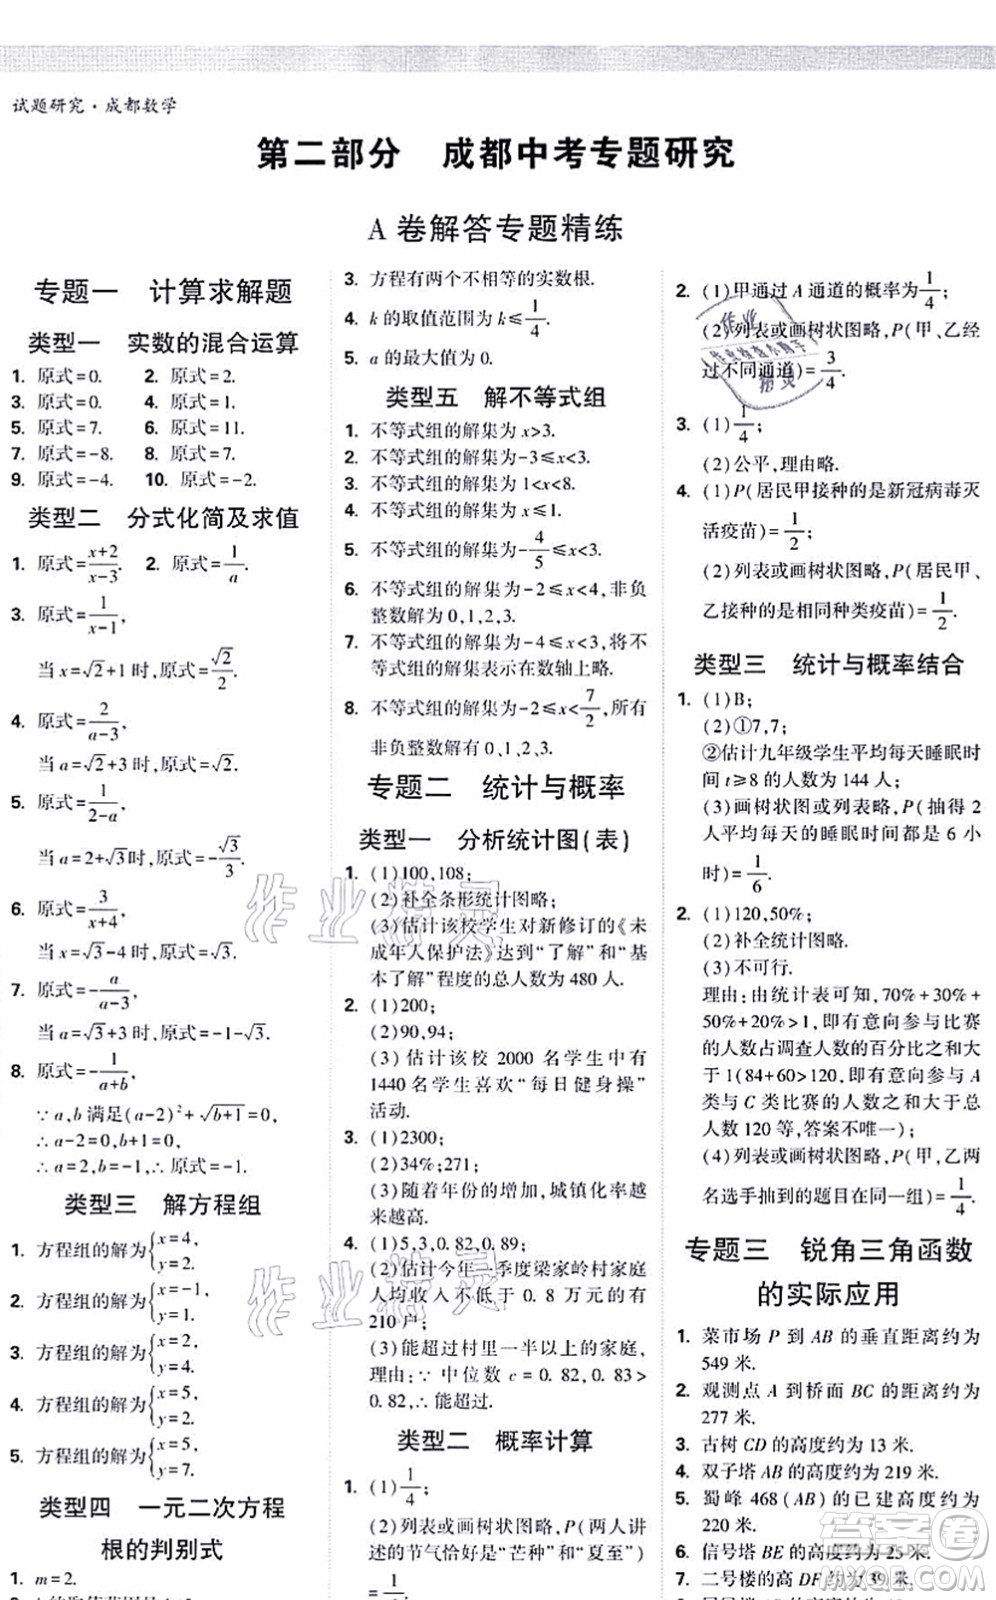 试题研究·成都数学
第二部分 成都中考专题研究
A 卷解答专题精练
专题一 计算求解题
类型一 实数的混合运算
1. 原式=0. 2. 原式=2.
3. 原式=0. 4. 原式=1.
5. 原式=7. 6. 原式=11.
7. 原式=-8. 8. 原式=7.
9. 原式=-4. 10. 原式=-2.
类型二 分式化简及求值
1. 原式=(x+2)/(x-3). 2. 原式=1/a.
3. 原式=1/(x-1),
当 x=√2+1 时,原式=√2/2.
4. 原式=2/(a-3),
当 a=√2+3 时,原式=√2.
5. 原式=1/(2-a),
当 a=2+√3 时,原式=-√3/3.
6. 原式=3/(x+4),
当 x=√3-4 时,原式=√3.
7. 原式=-a/(a-3),
当 a=√3+3 时,原式=-1-√3.
8. 原式=-1/(a+b),
∵a,b 满足(a-2)²+√(b+1)=0,
∴a-2=0,b+1=0,
∴a=2,b=-1,∴原式=-1.
类型三 解方程组
1. 方程组的解为{x=4,
y=2.
2. 方程组的解为{x=-1,
y=1.
3. 方程组的解为{x=5,
y=1.
4. 方程组的解为{x=5,
y=2.
5. 方程组的解为{x=5,
y=7.
类型四 一元二次方程
根的判别式
1. m=2.
3. 方程有两个不相等的实数根.
4. k 的取值范围为 k≤1/4.
5. a 的最大值为 0.
类型五 解不等式组
1. 不等式组的解集为 x>3.
2. 不等式组的解集为-3≤x<3.
3. 不等式组的解集为 1<x<8.
4. 不等式组的解集为 x≤1.
5. 不等式组的解集为-4/5≤x<3.
6. 不等式组的解集为-2≤x<4,非负
整数解为 0,1,2,3.
7. 不等式组的解集为-4≤x<3,将不
等式组的解集表示在数轴上略.
8. 不等式组的解集为-2≤x<7/2,所有
非负整数解有 0,1,2,3.
专题二 统计与概率
类型一 分析统计图(表)
1. (1)100,108;
(2)补全条形统计图略;
(3)估计该校学生对新修订的《未
成年人保护法》达到“了解”和“基
本了解”程度的总人数为 480 人.
2. (1)200;
(2)90,94;
(3)估计该校 2000 名学生中有
1440 名学生喜欢“每日健身操”
活动.
3. (1)2300;
(2)34%;271;
(3)随着年份的增加,城镇化率越
来越高.
4. (1)5,3,0.82,0.89;
(2)估计今年一季度梁家岭村家庭
人均收入不低于 0.8 万元的有
210 户;
(3)能超过村里一半以上的家庭,
理由:∵中位数 c=0.82,0.83>
0.82,∴能超过.
类型二 概率计算
1. (1)1/4;
(2)列表或画树状图略,P(两人讲
述的节气恰好是“芒种”和“夏至”)
=1/12.
2. (1)甲通过 A 通道的概率为1/4;
(2)列表或画树状图略,P(甲、乙经
过不同通道)=3/4.
3. (1)1/4;
(2)公平,理由略.
4. (1)P(居民甲接种的是新冠病毒灭
活疫苗)=1/2;
(2)列表或画树状图略,P(居民甲、
乙接种的是相同种类疫苗)=1/2.
类型三 统计与概率结合
1. (1)B;
(2)①7,7;
②估计九年级学生平均每天睡眠时
间 t≥8 的人数为 144 人;
(3)画树状图或列表略,P(抽得 2
人平均每天的睡眠时间都是 6 小
时)=1/6.
2. (1)120,50%;
(2)补全统计图略.
(3)不可行.
理由:由统计表可知,70%+30%+
50%+20%>1,即有意向参与比赛
的人数占调查人数的百分比之和大
于 1(84+60>120,即有意向参与 A
类与 C 类比赛的人数之和大于总
人数 120 等,答案不唯一);
(4)画树状图或列表略,P(甲,乙两
名选手抽到的题目在同一组)=1/4.
专题三 锐角三角函数
的实际应用
1. 菜市场 P 到 AB 的垂直距离约为
549 米.
2. 观测点 A 到桥面 BC 的距离约为
277 米.
3. 古树 CD 的高度约为 13 米.
4. 双子塔 AB 的高度约为 219 米.
5. 蜀峰 468(AB)的已建高度约为
220 米.
6. 信号塔 BE 的高度约为 25 米.
7. 二号楼的高 DF 约为 39 米.
作业精灵
作业精灵
答案圈